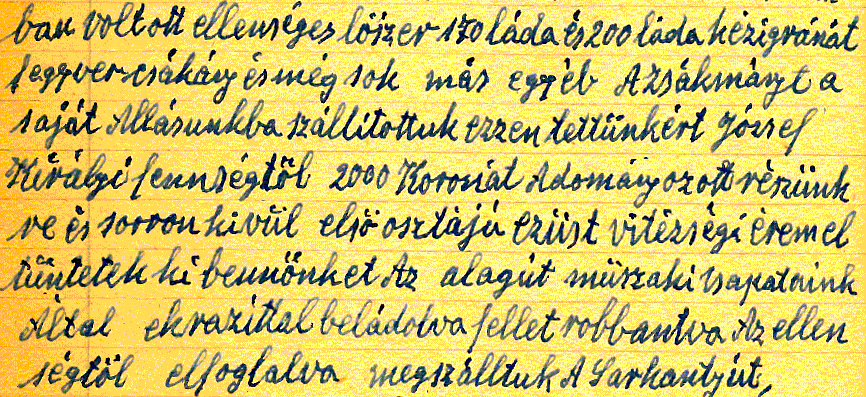 ban volt ott ellenséges lőszer 170 láda és 200 láda kézigránát
fegyver csákány és még sok más egyéb A Zsákmányt a
saját Állásunkba szállitottuk ezzen tettünkért József
Királyi fennségtől 2000 Koronát Adományozott részünk
re és sorron kivül első osztájú ezüst vitézségi éremel
tüntetek ki bennönket Az alagút műszaki csapataink
Által ekrazittal beládolva fellet robbantva Az ellen
ségtől elfoglalva megszálltuk A Sarkantyút,